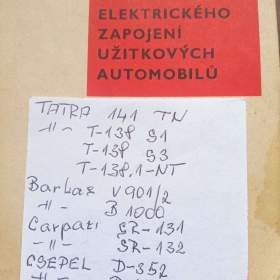 ELEKTRICKÉHO
ZAPOJENÍ
UŽITKOVÝCH
AUTOMOBILŮ
TATRA 141 TN
-"- T-138 S1
T-138 S3
T-138.1-NT
Barkas V901/2
-"- B1000
Carpati SR-131
-"- SR-132
CSEPEL D-352